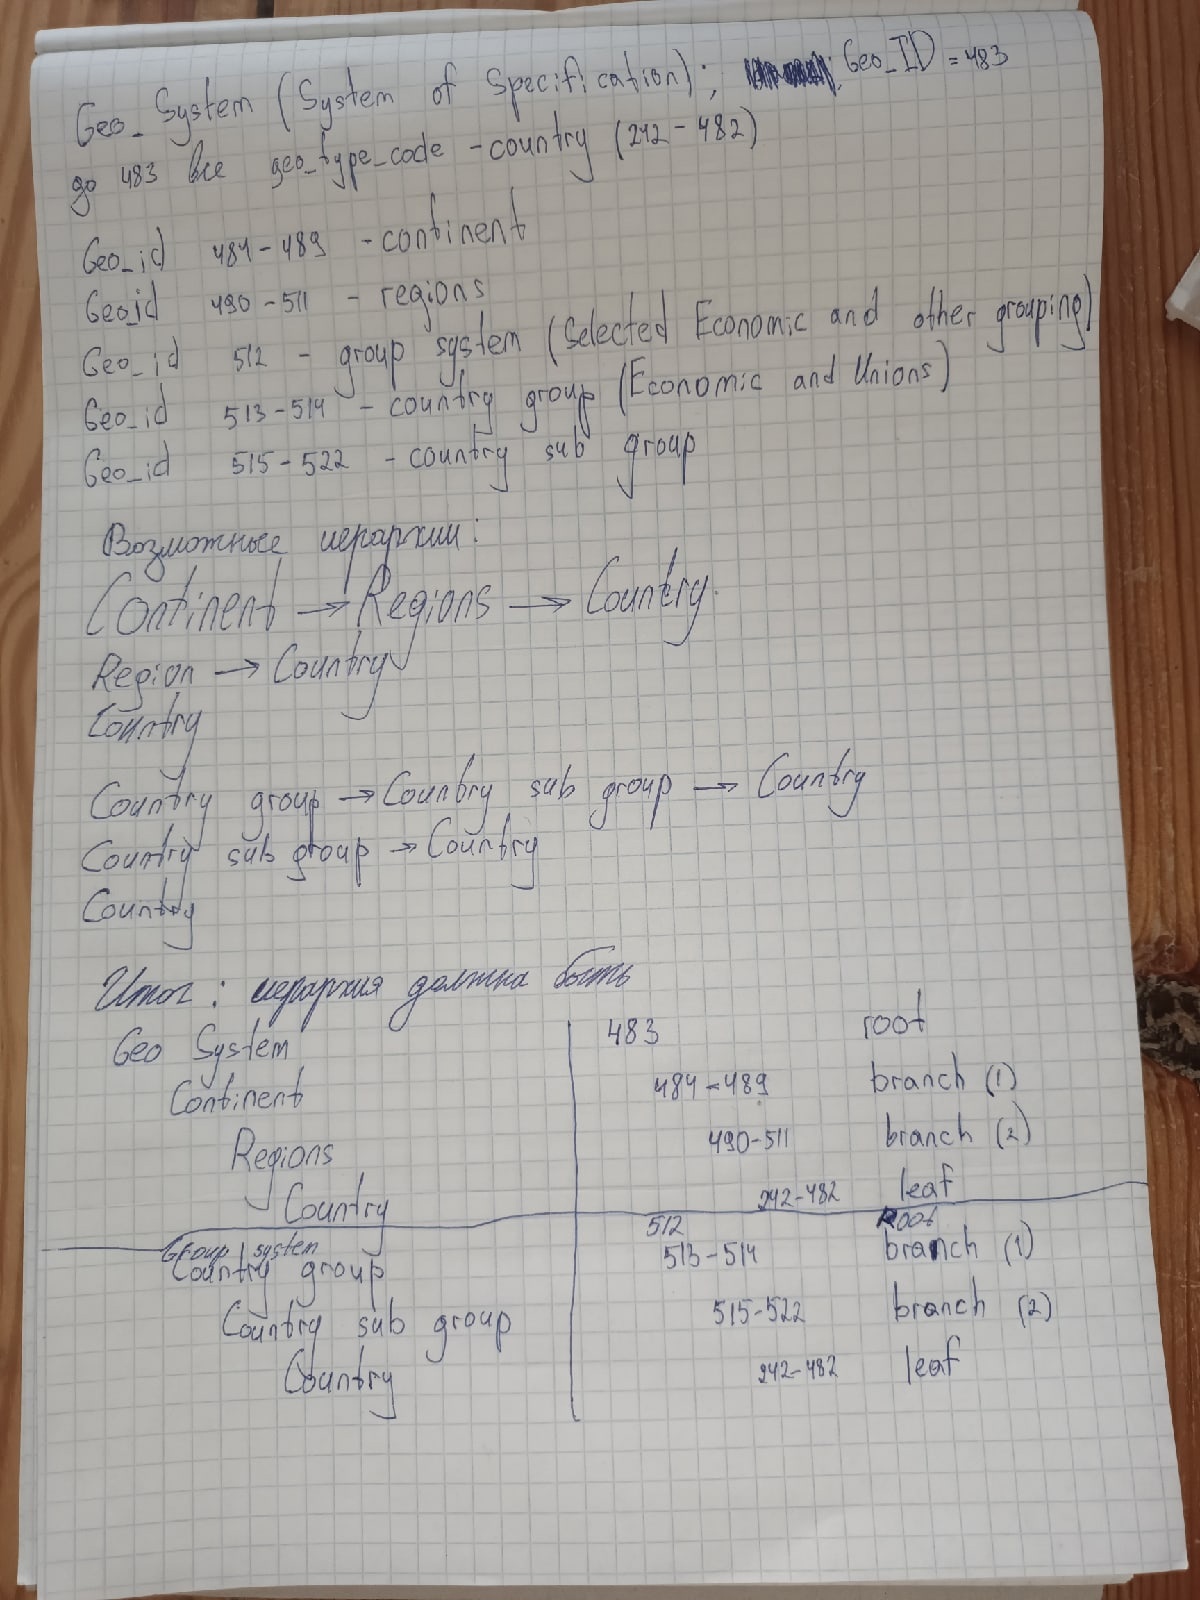 Geo_System (System of Specification); Geo_ID = 483
до 483 все geo_type_code - country (242 - 482)
Geo_id 484 - 489 - continent
Geo_id 490 - 511 - regions
Geo_id 512 - group system (Selected Economic and other grouping)
Geo_id 513 - 514 - country group (Economic and Unions)
Geo_id 515 - 522 - country sub group
Возможные иерархии:
Continent → Regions → Country
Region → Country
Country
Country group → Country sub group → Country
Country sub group → Country
Country
Итог: иерархия должна быть
Geo System 483 root
Continent 484 - 489 branch (1)
Regions 490-511 branch (2)
Country 242-482 leaf
Group system 512 Root
Country group 513-514 branch (1)
Country sub group 515-522 branch (2)
Country 242-482 leaf